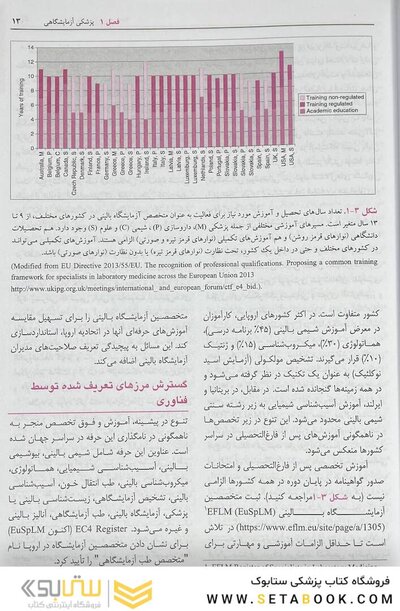 فصل ۱ پزشکی آزمایشگاهی ۱۳
Years of training
14
12
10
8
6
4
2
0
Training non-regulated
Training regulated
Academic education
Australia, M
Belgium, P
Belgium, C
Canada, S
Czech Republic, S
Denmark, S
Finland, S
France, P
Germany, S
Greece, P
Greece, S
Hungary, P
Ireland, S
Italy, P
Italy, S
Latvia, M
Latvia, S
Luxemburg, P
Luxemburg, S
Netherlands, S
Poland, S
Portugal, P
Slovakia, P
Slovakia, S
Slovakia, S
Spain, P
Spain, S
UK, S
USA, M
USA, S
شکل ۳-۱. تعداد سال‌های تحصیل و آموزش مورد نیاز برای فعالیت به عنوان متخصص آزمایشگاه بالینی در کشورهای مختلف، از ۹ تا
۱۳ سال متغیر است. مسیرهای آموزشی مختلفی از جمله پزشکی (M)، داروسازی (P)، شیمی (C) و علوم (S) وجود دارد. هم تحصیلات
دانشگاهی (نوارهای قرمز روشن) و هم آموزش‌های تکمیلی (نوارهای قرمز تیره و صورتی) الزامی هستند. آموزش‌های تکمیلی می‌تواند
در کشورهای مختلف و حتی در داخل یک کشور، تحت نظارت (نوارهای قرمز تیره) یا بدون نظارت (نوارهای صورتی) باشد.
(Modified from EU Directive 2013/55/EU. The recognition of professional qualifications. Proposing a common training
framework for specialists in laboratory medicine across the European Union 2013
http://www.ukipg.org.uk/meetings/international_and_european_forum/ctf_p4_bid.).
کشور متفاوت است. در اکثر کشورهای اروپایی، کارآموزان
در معرض آموزش شیمی بالینی (۴۵٪ برنامه درسی)،
هماتولوژی (۳۰٪)، میکروب‌شناسی (۱۵٪) و ژنتیک
(۱۰٪) قرار می‌گیرند. تشخیص مولکولی (آزمایش اسید
نوکلئیک) به عنوان یک تکنیک در نظر گرفته می‌شود و
در همه زمینه‌ها گنجانده شده است. در مقابل، در بریتانیا و
ایرلند، آموزش آسیب‌شناسی شیمیایی به زیر رشته سنتی
شیمی بالینی محدود می‌شود. این تنوع در زیر تخصص‌ها
در ناهمگونی آموزش‌های پس از فارغ‌التحصیلی در سراسر
کشورها منعکس می‌شود.
آموزش تخصصی پس از فارغ‌التحصیلی و امتحانات
صدور گواهینامه در پایان دوره در همه کشورها الزامی
نیست (به شکل ۳-۱ مراجعه کنید). ثبت متخصصین
پزشکی آزمایشگاه بالینی EFLM (EuSpLM)
(https://www.eflm.eu/site/page/a/1305) در تلاش
است تا حداقل الزامات آموزشی و مهارتی برای
متخصصین آزمایشگاه بالینی را برای تسهیل مقایسه
آموزش‌های حرفه‌ای آنها در اتحادیه اروپا، استانداردسازی
کند. این مسائل به پیچیدگی تعریف صلاحیت‌های مدیران
آزمایشگاه بالینی اضافه می‌کند.
گسترش مرزهای تعریف شده توسط
فناوری
تنوع در پیشینه، آموزش و فوق تخصص منجر به
ناهمگونی در نامگذاری این حرفه در سراسر جهان شده
است. عناوین این حرفه شامل شیمی بالینی، بیوشیمی
بالینی، آسیب‌شناسی شیمیایی، هماتولوژی،
میکروب‌شناسی بالینی، طب انتقال خون، آسیب‌شناسی
بالینی، تشخیص آزمایشگاهی، زیست‌شناسی بالینی یا
پزشکی، طب آزمایشگاهی بالینی، آنالیز بالینی
و غیره می‌شود. EC4 Register (اکنون EuSpLM)
برای نشان دادن متخصصین آزمایشگاه در اروپا نام
"متخصص طب آزمایشگاهی" را تأیید کرد.
ستابوک
فروشگاه اینترنتی کتاب
فروشگاه کتاب پزشکی ستابوک
WWW.SETABOOK.COM